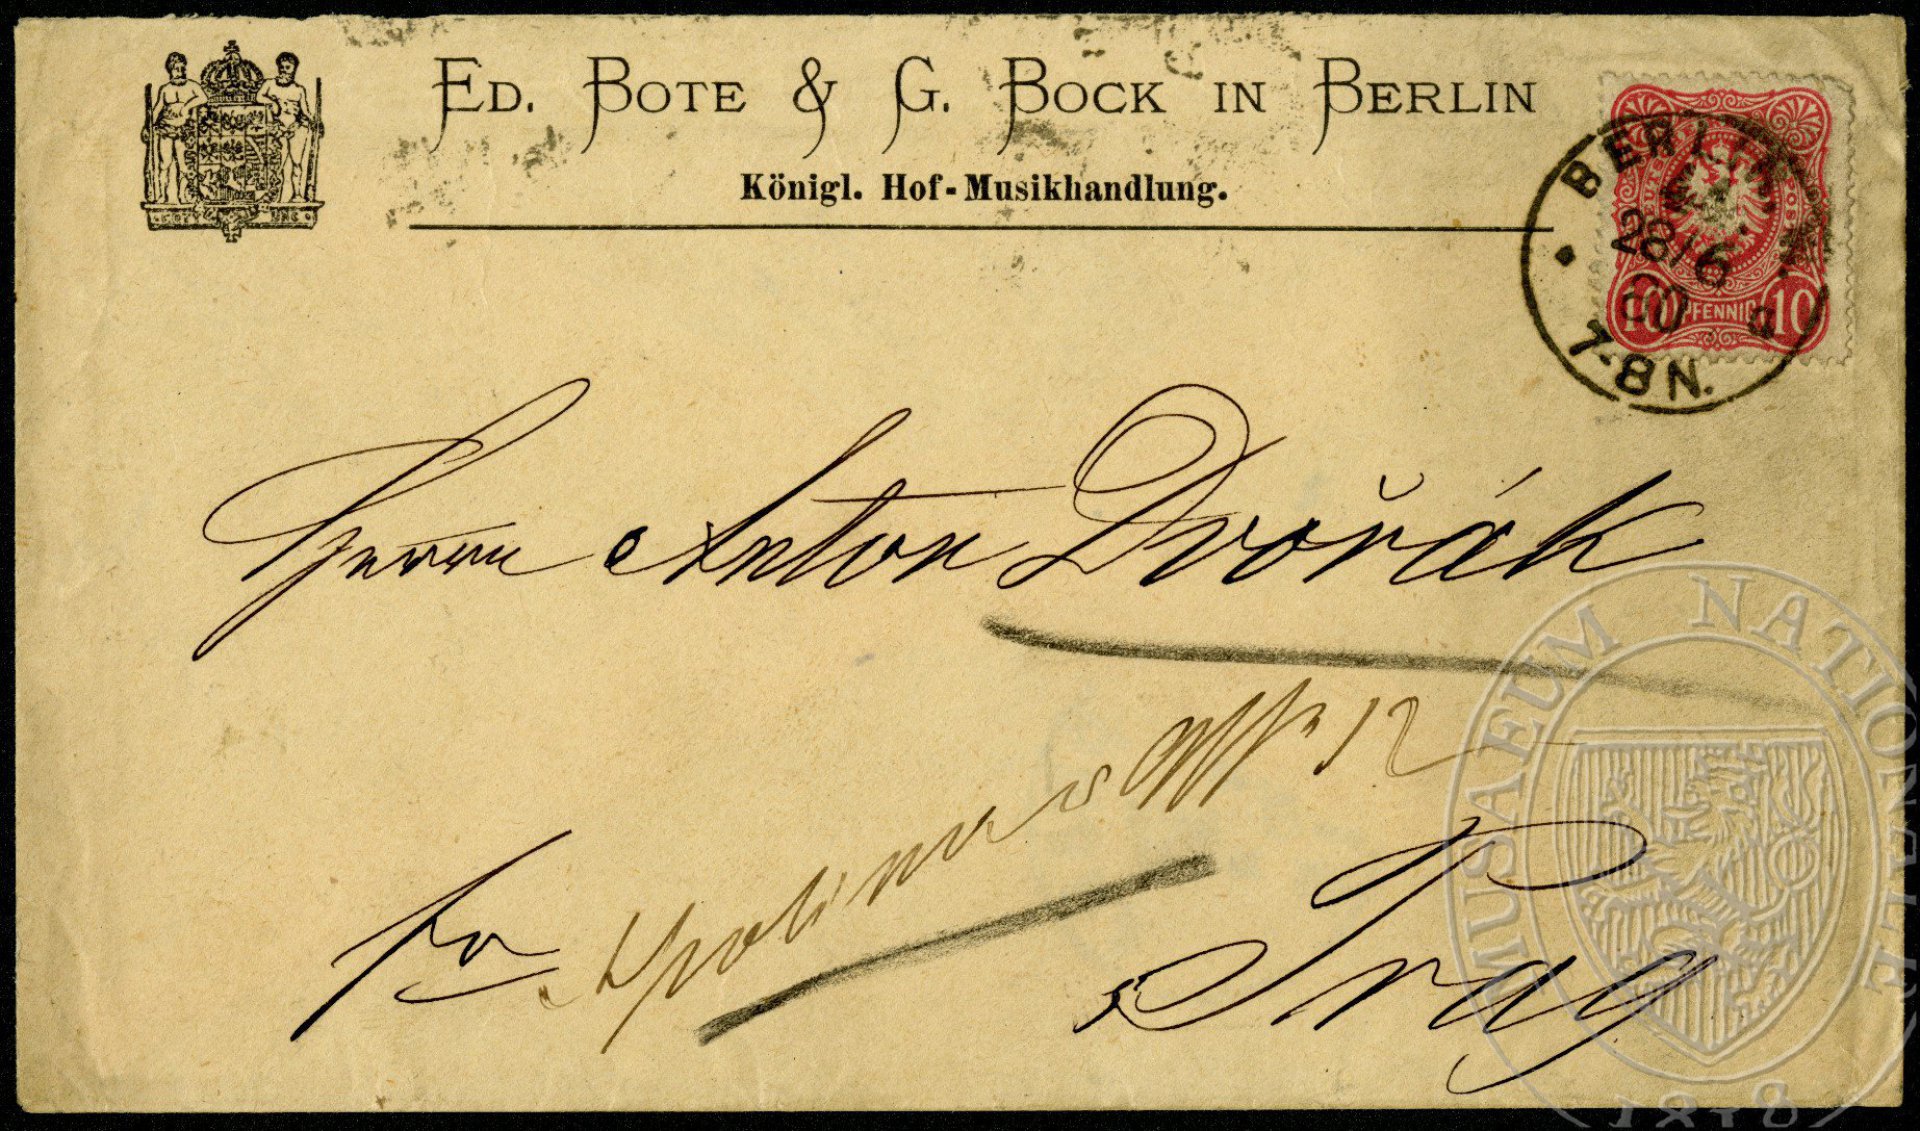 ED. BOTE & G. BOCK IN BERLIN
Königl. Hof-Musikhandlung.
BERLIN
28/6
7-8N.
DEUTSCHE REICHS-POST
10 PFENNIG 10
Herrn Anton Dvořák
12
Prag
MUSAEUM NATIONALE
1818